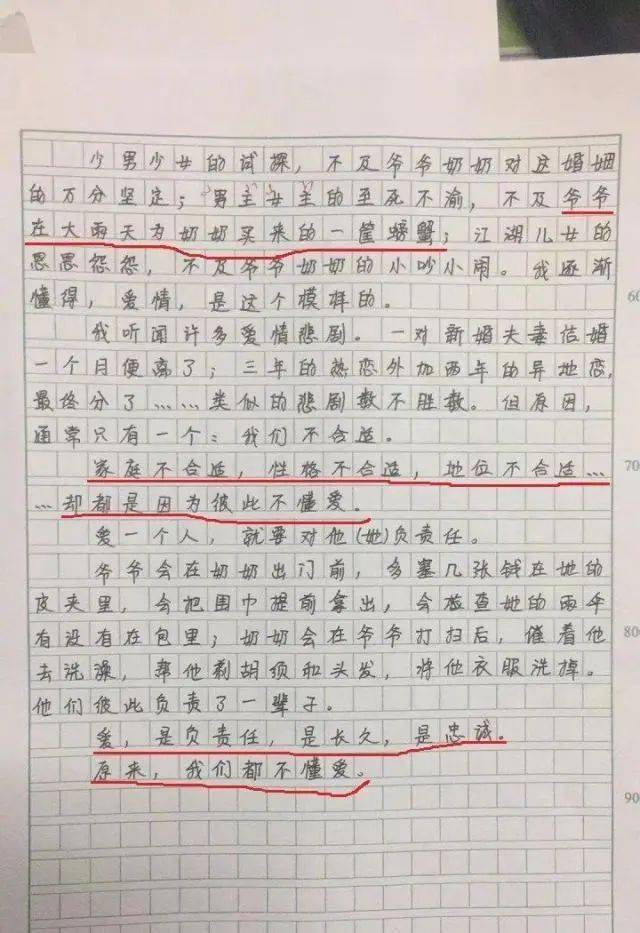 少男少女的试探，不及爷爷奶奶对这婚姻
的万分坚定；男主女主的至死不渝，不及爷爷
在大雨天为奶奶买来的一筐螃蟹；江湖儿女的
恩恩怨怨，不及爷爷奶奶的小吵小闹。我逐渐
懂得，爱情，是这个模样的。
60
我听闻许多爱情悲剧。一对新婚夫妻结婚
一个月便离了；三年的热恋外加两年的异地恋，
最终分了……类似的悲剧数不胜数。但原因，
通常只有一个：我们不合适。
家庭不合适，性格不合适，地位不合适……
70
…却都是因为彼此不懂爱。
爱一个人，就要对他(她)负责任。
爷爷会在奶奶出门前，多塞几张钱在她的
皮夹里，会把围巾提前拿出，会检查她的雨伞
有没有在包里；奶奶会在爷爷打扫后，催着他
80
去洗澡，帮他剃胡须和头发，将他衣服洗掉。
他们彼此负责了一辈子。
爱，是负责任，是长久，是忠诚。
原来，我们都不懂爱。
90